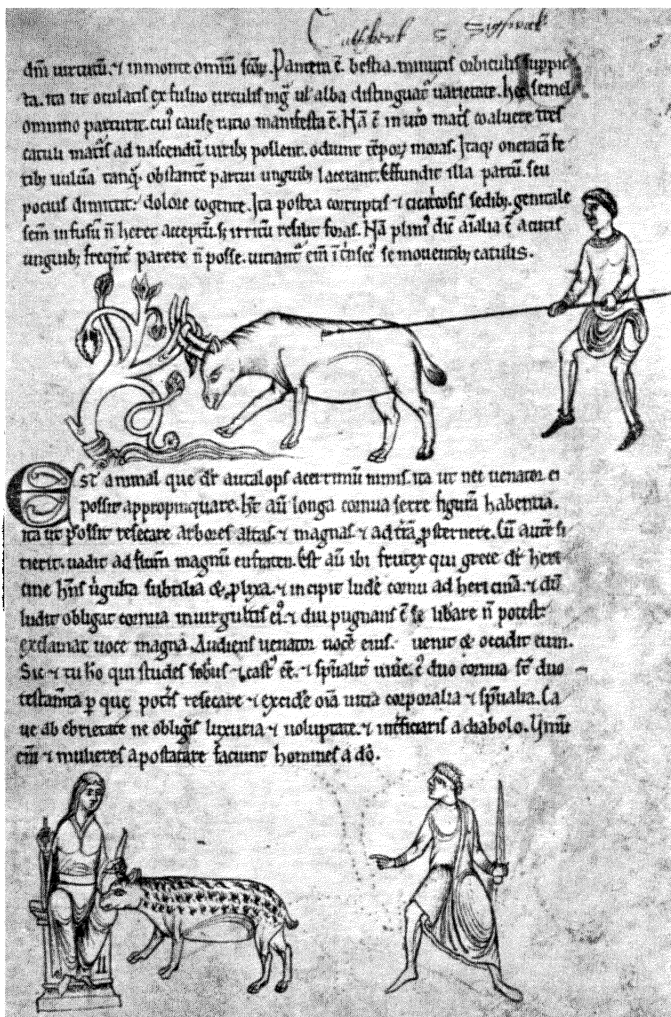 Cuthbert s Sigfrid
dm̄ uirtutū. ⁊ in monte omniū scōꝝ. Pantera ē. bestia. minutis orbiculis suppic
ta. ita ut oculatis ex fuluo circulis nig̃ ul' alba distinguat᷑ uarietate. hec semel
omnino parturit. cuiꝰ cause ratio manifesta ē. Nā ē in utō matis coaluere tres
catuli matis ad nascendū uiribꝫ pollent. odiunt tēpoꝝ moras. Itaqꝫ oneratā fe
tibꝫ uuluā tanqᷓ. obstante partui unguibꝫ lacerant. Effundit illa partū. seu
pocius dimittit᷑ dolore cogente. Ita postea corruptis ⁊ cicatosis sedibꝫ. genitale
sem̄ infusū n̄ heret acceptū. sꝫ irritū resilit foras. Nā plinīꝰ dic̄ aīalia ē acutis
unguibꝫ freqn̄t parere n̄ posse. uiciant᷑ em̄ īt̄nsec̄ se mouentibꝫ catulis.
Est animal que dr̄ autalops acerrimū nimis. ita ut nec uenator ei
possit appropinquare. ht̄ aū longa cornua serre figurā habentia.
ita ut possit resecare arbores altas. ⁊ magnas ⁊ ad tr̄ā ꝓsternere. Cū autē si
tierit. uadit ad flum̄ magnū eufraten. Est aū ibi frutex qui grece dr̄ heri
cine hn̄s uirgulta subtilia & ꝓlixa. ⁊ incipit ludē cornu ad hericinā. ⁊ dū
ludit obligat cornua in uirgultis eiꝰ. ⁊ diu pugnans ē se libare n̄ potest
exclamat uoce magna. Audiens uenator uocē eius. uenit & occidit eum.
Sic ⁊ tu hō qui studes sobrius ⁊ castꝰ ēē. ⁊ spūalit᷑ uiuē. ē duo cornua st̄ duo
testamta ꝑ que potis resecare ⁊ excidē oīa uitia corporalia ⁊ spūalia. Ca
ue ab ebrietate ne obligis luxuria ⁊ uoluptate. ⁊ int̄ficiaris a diabolo. Uinū
em̄ ⁊ mulieres apostatare faciunt homines a dō.